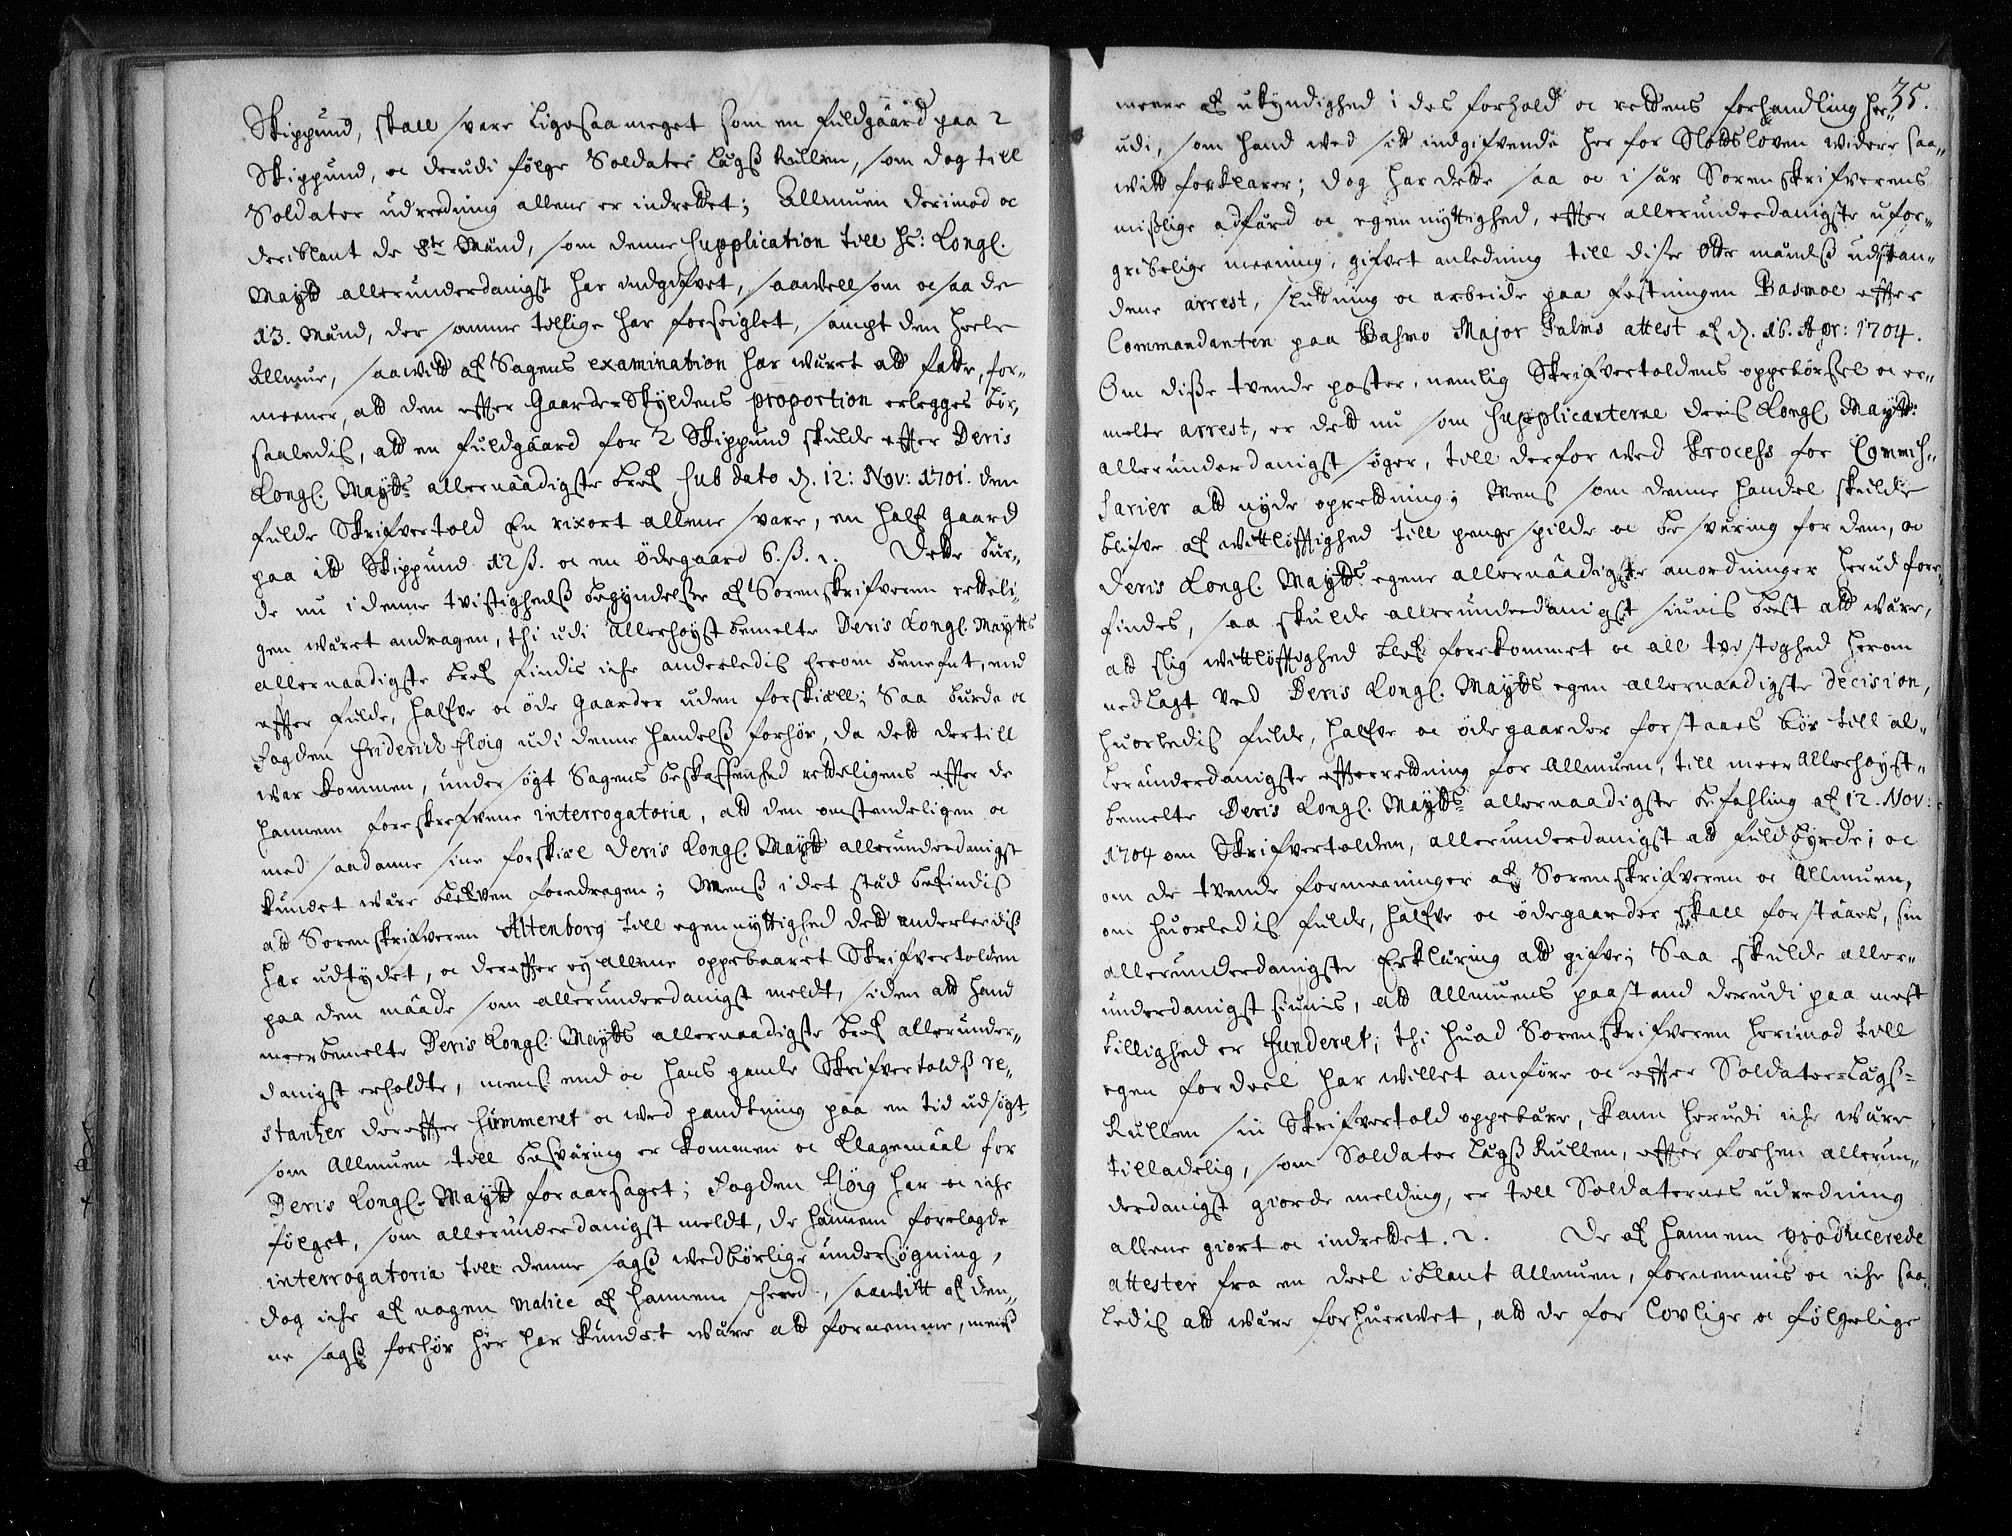 Skippund, skall svare ligesaa meget som en fuldgaard paa 2
Skippund, oc derudi følge Soldater lægs Rullen, som dog till
Soldater udredning allene er indrettet; Allmuen derimod oc
deriblant de 8te Mænd, som denne Supplication till Hs: Kongl.
Maytt allerunderdanigst har indgifvet, saavell som oc saa de
13. Mænd, der samme tillige har forseiglet, sampt den heele
Allmue, saavitt af Sagens examination har været att fatte, for-
meener, att den effter Gaarder Skyldens proportion erlegges bør,
saaledis, att en fuldgaard for 2 Skippund skulde effter Deris
Kongl. Maytts allernaadigste bref sub dato d. 12: Nov: 1701. den
fulde Skrifvertold En rixort allene svare, en half gaard
paa itt Skippund 12 ß. oc en ødegaard 6. ß. Dette bur-
de nu i denne tvistigheds begyndelse af Sorenskrifveren retteli-
gen været andragen, thi udi Allerhøyst bemelte Deris Kongl. Maytts
allernaadigste bref findis iche anderledis herom benefnt, end
effter fulde, halfve oc øde Gaarder uden forskiæll; Saa burde oc
Fogden Friderich Fløig udi denne handels forhør, da dett dertill
war kommen, undersøgt Sagens beskaffenhed retteligens effter de
hannem foreskrefvene interrogatoria, att den omstendeligen oc
med saadanne sine forskiæl Deris Kongl. Maytt allerunderdanigst
kundet være blefven foredragen; Menß i det sted befindis
att Sorenskrifveren Altenborg till egennyttighed dett anderledis
har udtydet, oc dereffter ey allene oppebaaret Skrifvertolden
paa den maade som allerunderdanigst meldt, siden att hand
meerbemelte Deris Kongl. Maytts allernaadigste bref allerunder-
danigst erholdte, mens end oc hans gamle Skrifvertolds re-
stantzer dereffter summeret oc wed pandtning paa en tid udsøgt
som Allmuen till besværing er kommen oc Klagemaal for
Deris Kongl. Maytt foraarsaget; Fogden Fløig har oc iche
følget, som allerunderdanigst meldt, de hannem forelagde
interrogatoria till denne sags wedbørlige undersøgning,
dog iche af nogen malice af hannem skeed, saavitt af den-
ne sags forhør her har kundet være att fornemme, mens
35.
meere af ukyndighed i des forhold oc rettens forhandling her-
udi, som hand wed sitt indgifvende her for Slottsloven widere saa-
witt forklarer; dog har dette saa oc i sær Sorenskrifverens
mislige adfærd oc egennyttighed, effter allerunderdanigste ufor-
gribelige meening, gifvet anledning till disse otte mænds udstan-
dene arrest, slutning oc arbeide paa fæstningen Basmoe effter
Commandanten paa Basmo Major Palms attest af d. 16. Apr: 1704.
Om disse tvende poster, nemlig Skrifvertoldens oppebørsel oc er-
melte arrest, er dett nu som Supplicanterne Deris Kongl. Maytt:
allerunderdanigst søger, till derfor wed Process for Commis-
sarier att nyde oprettning; Mens som denne handel skulde
blifve af witløfftighed till penge spilde oc besværing for dem, oc
Deris Kongl. Maytts egene allernaadigste anordninger herud fore-
findes, saa skulde allerunderdanigst siunis best att være,
att slig witløfftighed blef forekommet oc all tvistighed herom
nedlagt ved Deris Kongl. Maytts egen allernaadigste decision,
huorledis fulde, halfve oc ødegaarder forstaaes bør till al-
lerunderdanigste effterrettning for Allmuen, till meer Allerhøyst-
bemelte Deris Kongl. Maytts allernaadigste befahling af 12. Nov:
1704 om Skrifvertolden, allerunderdanigst att fuldbyrde; oc
om de tvende formeeninger af Sorenskrifveren oc Allmuen,
om huorledis fulde, halfve oc ødegaarder skall forstaaes, sin
allerunderdanigste Erklæring att gifve; Saa skulde aller-
underdanigst siunis, att Allmuens paastand derudi paa mest
billighed er funderet; thi huad Sorenskrifveren herimod till
egen fordeel har willet anføre oc effter Soldater-Lægs-
Rullen sin Skrifvertold oppebære, kann herudi iche være
tilladelig, som Soldater Lægs Rullen, effter forhen allerun-
derdanigst giorde melding, er till Soldaternes udredning
allene giort oc indrettet. De af hannem producerede
attester fra en deel iblant Allmuen, fornemmis oc iche saa-
ledis att være forhuervet, att de for lovlige oc følgelige